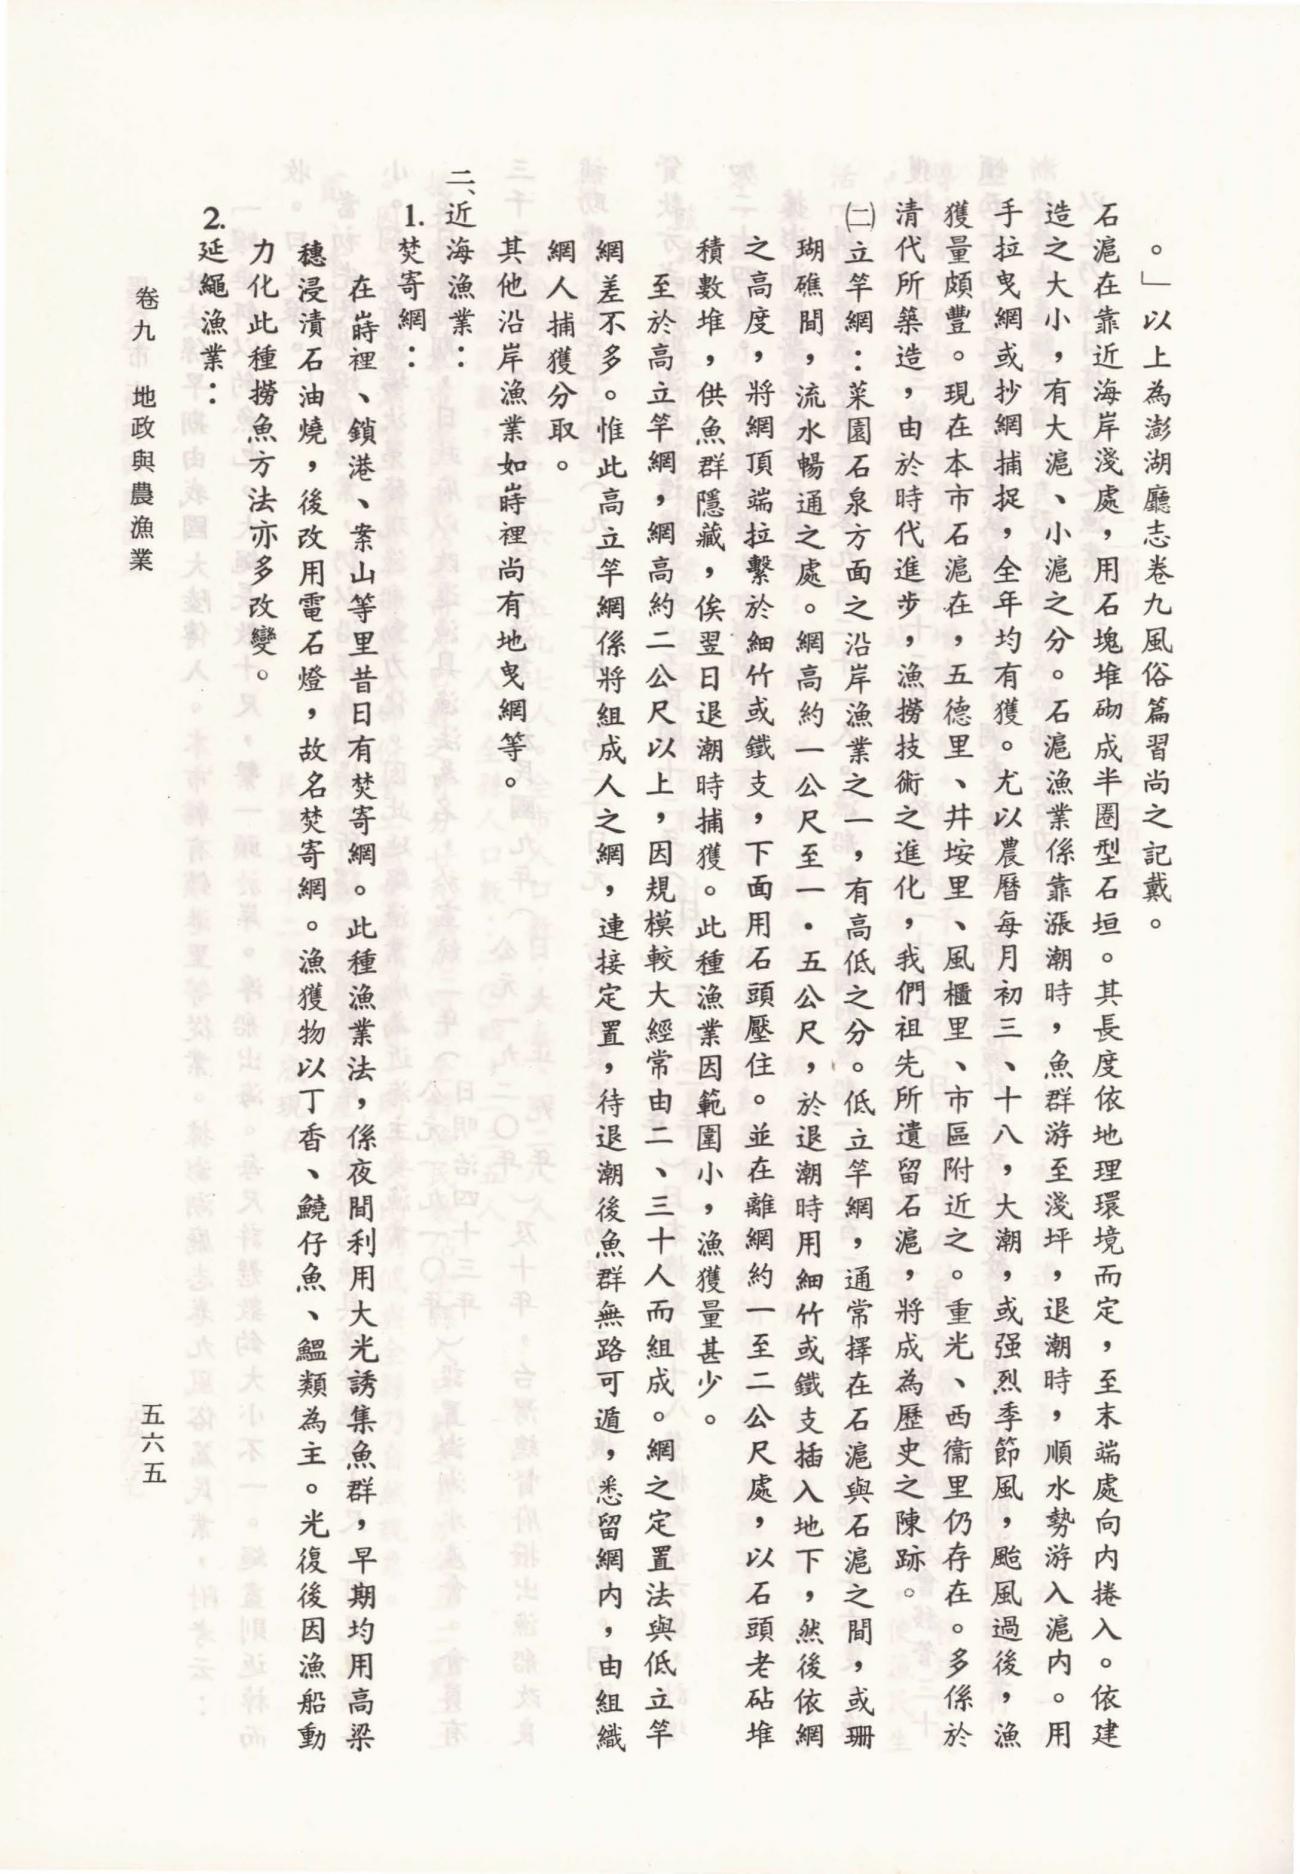 。」以上為澎湖廳志卷九風俗篇習尚之記戴。
石滬在靠近海岸淺處，用石塊堆砌成半圈型石垣。其長度依地理環境而定，至末端處向內捲入。依建
造之大小，有大滬、小滬之分。石滬漁業係靠漲潮時，魚群游至淺坪，退潮時，順水勢游入滬內。用
手拉曳網或抄網捕捉，全年均有獲。尤以農曆每月初三、十八，大潮，或强烈季節風，颱風過後，漁
獲量頗豐。現在本市石滬在，五德里、井垵里、風櫃里、市區附近之。重光、西衞里仍存在。多係於
清代所築造，由於時代進步，漁撈技術之進化，我們祖先所遺留石滬，將成為歷史之陳跡。
㈡立竿網：菜園石泉方面之沿岸漁業之一，有高低之分。低立竿網，通常擇在石滬與石滬之間，或珊
瑚礁間，流水暢通之處。網高約一公尺至一・五公尺，於退潮時用細竹或鐵支插入地下，然後依網
之高度，將網頂端拉繫於細竹或鐵支，下面用石頭壓住。並在離網約一至二公尺處，以石頭老砧堆
積數堆，供魚群隱藏，俟翌日退潮時捕獲。此種漁業因範圍小，漁獲量甚少。
至於高立竿網，網高約二公尺以上，因規模較大經常由二、三十人而組成。網之定置法與低立竿
網差不多。惟此高立竿網係將組成人之網，連接定置，待退潮後魚群無路可遁，悉留網內，由組織
網人捕獲分取。
其他沿岸漁業如嵵裡尚有地曳網等。
二、近海漁業：
1.焚寄網：
在嵵裡、鎖港、案山等里昔日有焚寄網。此種漁業法，係夜間利用大光誘集魚群，早期均用高梁
穗浸漬石油燒，後改用電石燈，故名焚寄網。漁獲物以丁香、鱙仔魚、鰮類為主。光復後因漁船動
力化此種撈魚方法亦多改變。
2.延繩漁業：
卷九　地政與農漁業
五六五